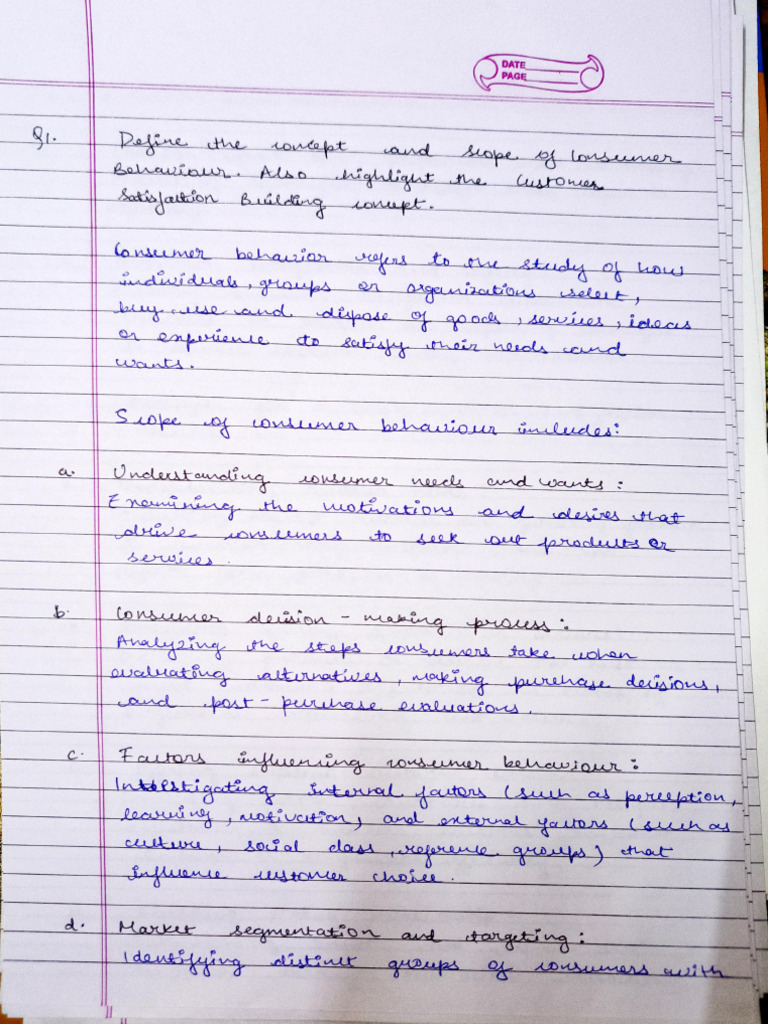 DATE
PAGE
Q1. Define the concept and scope of Consumer
Behaviour. Also highlight the Customer
Satisfaction Building concept.
Consumer behavior refers to the study of how
individuals, groups or organizations select,
buy, use and dispose of goods, services, ideas
or experience to satisfy their needs and
wants.
Scope of consumer behaviour includes:
a. Understanding consumer needs and wants:
Examining the motivations and desires that
drive consumers to seek out products or
services.
b. Consumer decision-making process:
Analyzing the steps consumers take when
evaluating alternatives, making purchase decisions,
and post-purchase evaluations.
c. Factors influencing consumer behaviour:
Investigating internal factors (such as perception,
learning, motivation, and external factors (such as
culture, social class, reference groups) that
influence customer choice.
d. Market segmentation and targeting:
Identifying distinct groups of consumers with